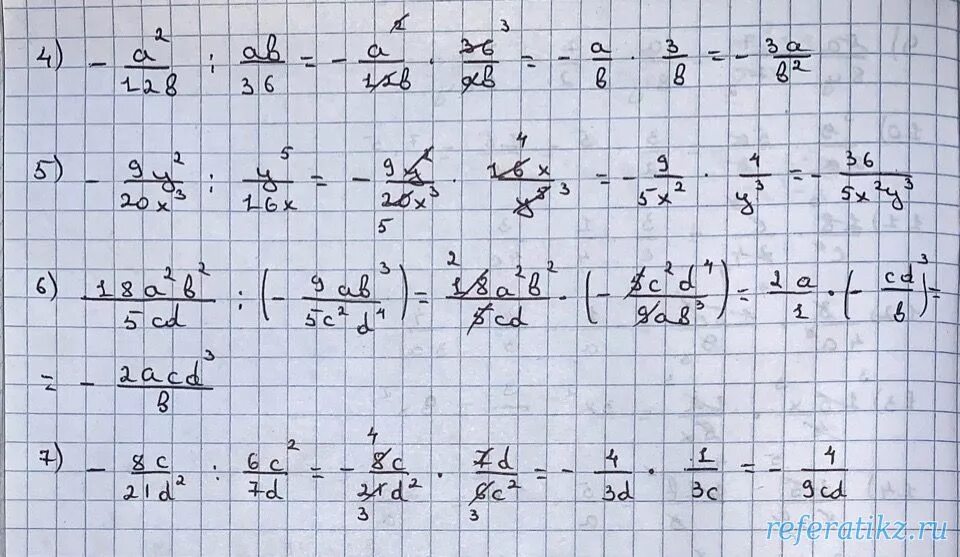 4) - a²/12b : ab/36 = - a²/12b · 36³/ab = - a/b · 3/b = - 3a/b²
5) - 9y²/20x³ : y⁵/16x = - 9y²/20x³ · 16x/y⁵ = - 9/5x² · 4/y³ = - 36/5x²y³
6) 18a²b²/5cd : (- 9ab³/5c²d⁴) = 18a²b²/5cd · (- 5c²d⁴/9ab³) = 2a/1 · (- cd³/b) =
= - 2acd³/b
7) - 8c/21d² : 6c²/7d = - 8c/21d² · 7d/6c² = - 4/3d · 1/3c = - 4/9cd
referatikz.ru